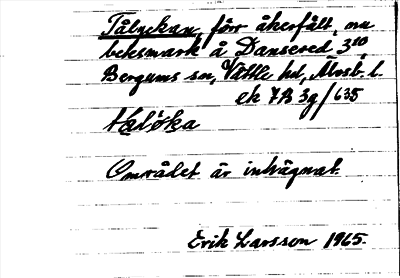 Tålyckan, förr åkerfält, nu
betesmark å Dansered 3²⁰,
Bergums sn, Vättle hd, Älvsb. l.
ek 7B 3g/635
Området är inhägnat.
Erik Larsson 1965.